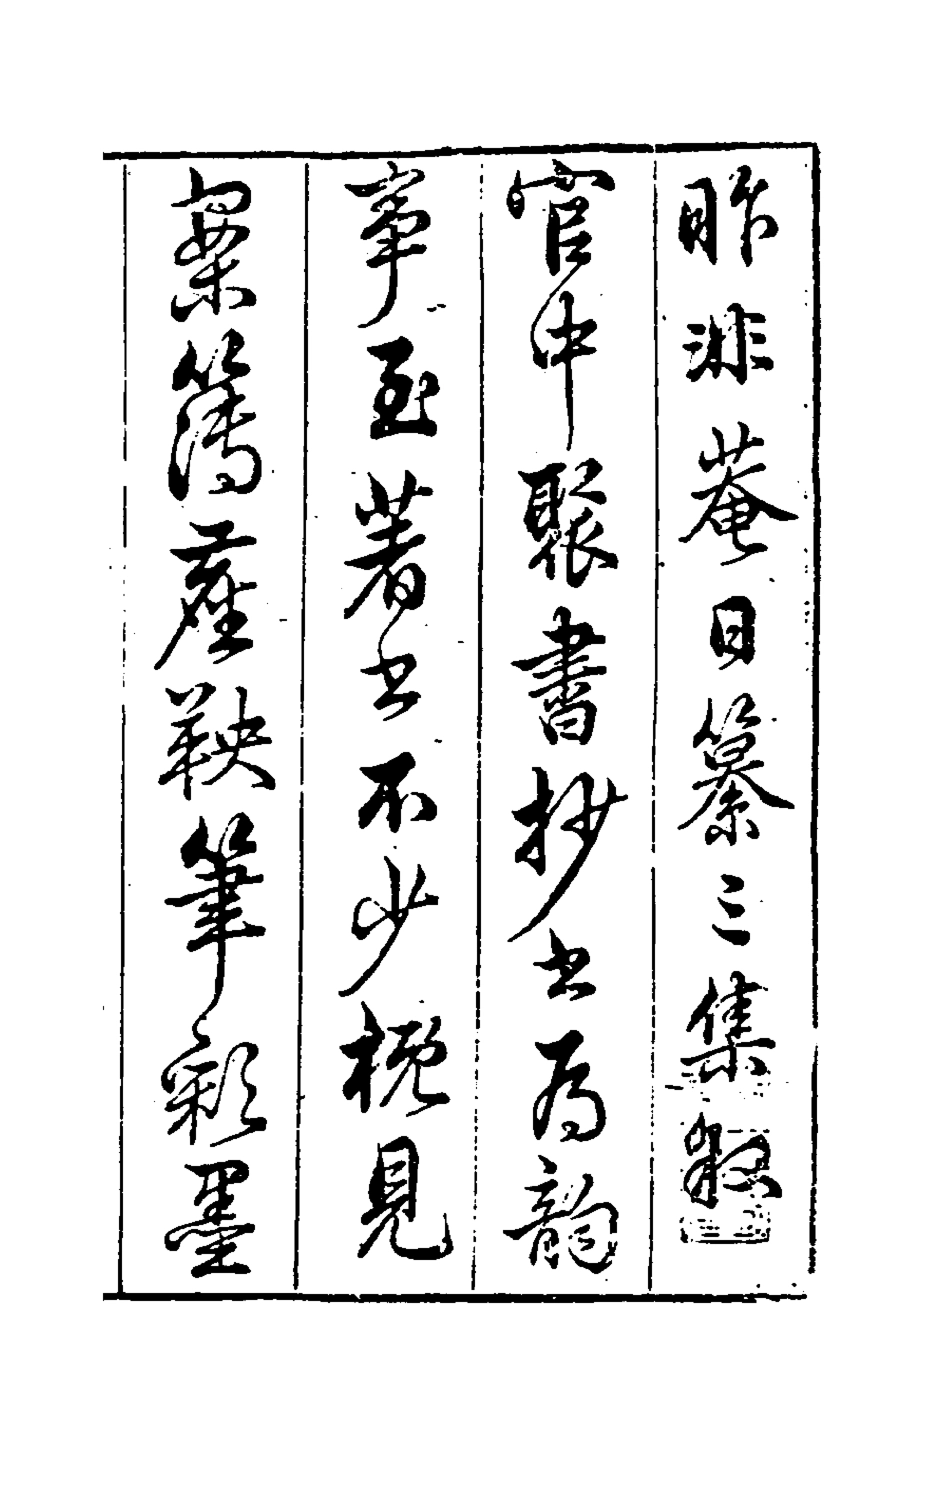 昨非菴日纂三集敘
官中聚書抄書為韻
事至著書不少概見
案簿塵鞅筆彩墨